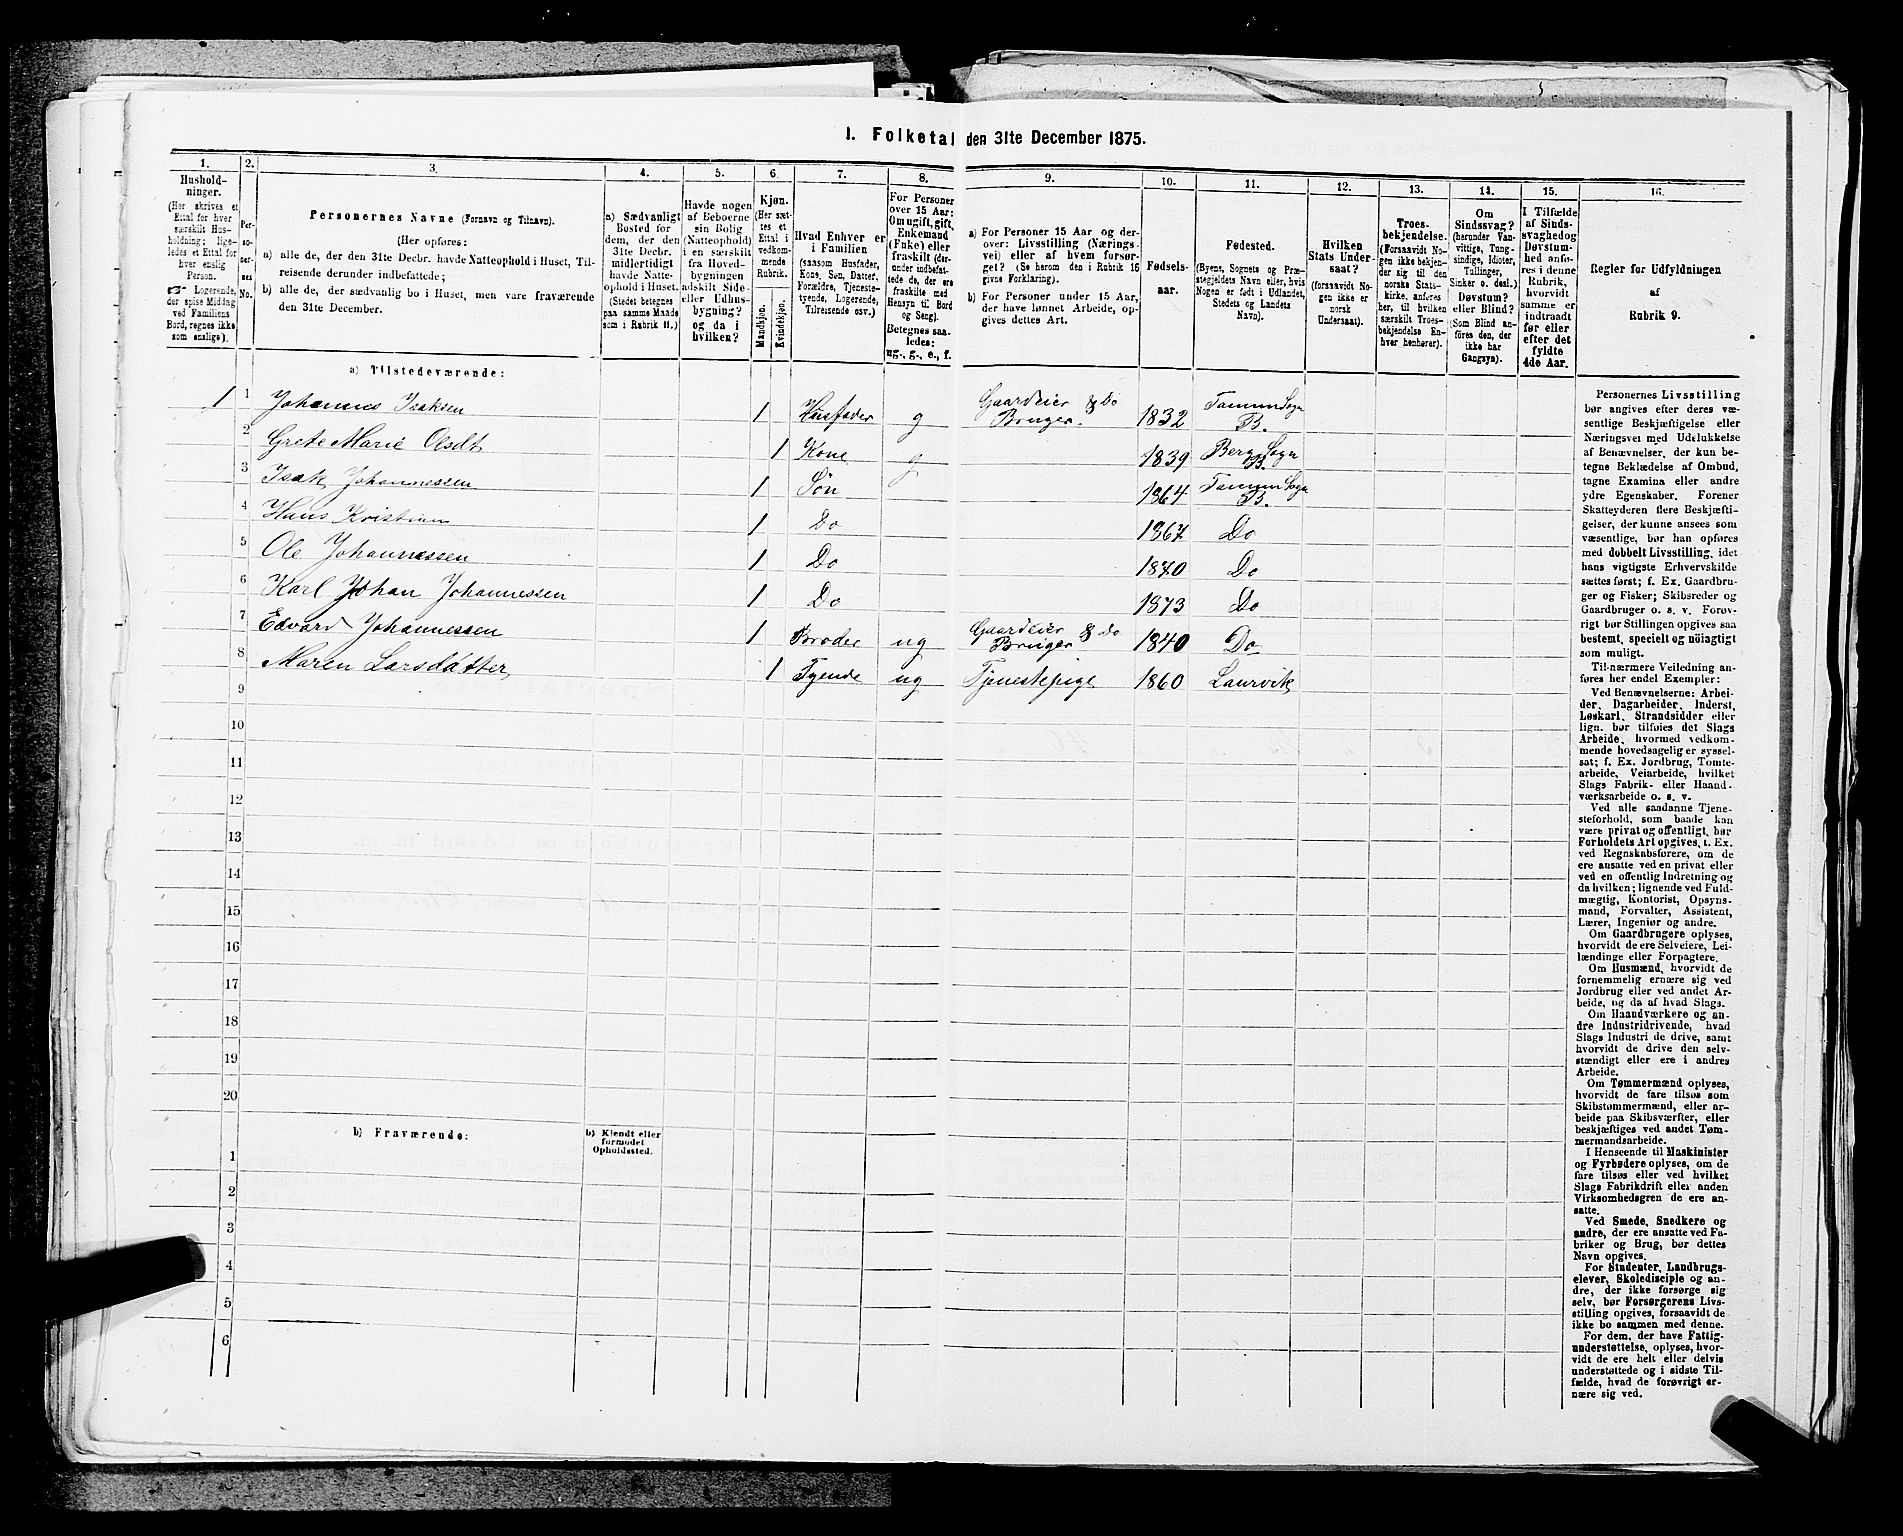 1. Folketal den 31te December 1875.
1.
Husholdninger.
(Her skrives et
Ettal for hver
særskilt Husholdning;
ligeledes et Ettal for
hver enslig
Person.
Logerende,
der spise Middag
ved Familiens
Bord, regnes ikke
som enslige).
2.
Personernes
No.
3.
Personernes Navne (Fornavn og Tilnavn).
(Her opføres:
a) alle de, der den 31te Decbr. havde Natteophold i Huset, Tilreisende derunder indbefattede;
b) alle de, der sædvanlig bo i Huset, men vare fraværende
den 31te December.
4.
a) Sædvanligt
Bosted for
dem, der den
31te Decbr.
midlertidigt
havde Natteophold
i Huset.
(Stedet betegnes
paa samme Maade
som i Rubrik 11.)
5.
Havde nogen
af Beboerne
sin Bolig
(Natteophold)
i en særskilt
fra Hovedbygningen
adskilt Side-
eller Udhusbygning?
og da i
hvilken?
6.
Kjøn.
(Her sættes
et
Ettal i
vedkommende
Rubrik.
Mandkjøn.
Kvindekjøn.
7.
Hvad Enhver er
i Familien
(saasom Husfader,
Kone, Søn, Datter,
Forældre, Tjenestetyende,
Logerende,
Tilreisende osv.)
8.
For Personer
over 15 Aar:
Om ugift, gift,
Enkemand
(Enke) eller
fraskilt (derunder
indbefattede
de, der ere
fraskilte med
Hensyn til Bord
og Seng).
Betegnes saaledes:
ug., g., e., f.
9.
a) For Personer 15 Aar og derover:
Livsstilling (Næringsvei)
eller af hvem forsørget?
(Se herom den i Rubrik 16
givne Forklaring).
b) For Personer under 15 Aar,
der have lønnet Arbeide, opgives
dettes Art.
10.
Fødselsaar.
11.
Fødested.
(Byens, Sognets og Præstegjeldets
Navn eller, hvis
Nogen er født i Udlandet,
Stedets og Landets
Navn).
12.
Hvilken
Stats Undersaat?
(forsaavidt Nogen
ikke er
norsk
Undersaat).
13.
Troesbekjendelse.
(Forsaavidt Nogen
ikke bekjender
sig til den
norske Statskirke,
anføres
her, til hvilken
særskilt Troesbekjendelse
Enhver
henhører).
14.
Om
Sindssvag?
(herunder Vanvittige,
Tungsindige,
Idioter,
Tullinger,
Sinker o. desl.)
Døvstum?
eller Blind?
(Som Blind anføres
den, der
ikke har
Gangsyn).
15.
I Tilfælde
af Sindssvaghed
og
Døvstumhed
anføres
i denne
Rubrik,
hvorvidt
samme er
indtraadt
før eller
efter det
fyldte
4de Aar.
16.
Regler for Udfyldningen
af
Rubrik 9.
a) Tilstedeværende:
1 1 Johannes Isaksen 1 Husfader g Gaardeier & Do Bruger. 1832 Tanum Sogn B.
2 Grete Marie Olsdt 1 Kone g 1839 Berg Sogn B.
3 Isak Johannessen 1 Søn 1864 Tanum Sogn B.
4 Hans Kristian 1 Do 1867 Do
5 Ole Johannessen 1 Do 1870 Do
6 Karl Johan Johannessen 1 Do 1873 Do
7 Edvard Johannessen 1 Broder ug Gaardeier & Do Bruger 1840 Do
8 Maren Larsdatter 1 Tyende ug Tjenestepige 1860 Laurvik
9
10
11
12
13
14
15
16
17
18
19
20
b) Fraværende:
b) Kjendt eller
formodet
Opholdssted.
1
2
3
4
5
6
Personernes Livsstilling
bør angives efter deres væsentlige
Beskjæftigelse eller
Næringsvei med Udelukkelse
af Benævnelser, der kun betegne
Beklædelse af Ombud,
tagne Examina eller andre
ydre Egenskaber. Forener
Skatteyderen flere Beskjæftigelser,
der kunne ansees som
væsentlige, bør han opføres
med dobbelt Livsstilling, idet
hans vigtigste Erhvervskilde
sættes først; f. Ex. Gaardbruger
og Fisker; Skibsreder og
Gaardbruger o. s. v. Forøvrigt
bør Stillingen opgives saa
bestemt, specielt og nøiagtigt
som muligt.
Til nærmere Veiledning anføres
her endel Exempler:
Ved Benævnelserne: Arbeider,
Dagarbeider, Inderst,
Løskarl, Strandsidder eller
lign. bør tilføies det Slags
Arbeide, hvormed vedkommende
hovedsagelig er sysselsat;
f. Ex. Jordbrug, Tomtearbeide,
Veiarbeide, hvilket
Slags Fabrik- eller Haandværksarbeide
o. s. v.
Ved alle saadanne Tjenesteforhold,
som baade kan
være privat og offentligt, bør
Forholdets Art opgives, f. Ex.
ved Regnskabsførere, om de
ere ansatte ved en privat eller
ved en offentlig Indretning og
da hvilken; lignende ved Fuldmægtig,
Kontorist, Opsynsmand,
Forvalter, Assistent,
Lærer, Ingeniør og andre.
Om Gaardbrugere oplyses,
hvorvidt de ere Selveiere, Leilændinge
eller Forpagtere.
Om Husmænd, hvorvidt de
fornemmelig ernære sig ved
Jordbrug eller ved andet Arbeide,
og da af hvad Slags.
Om Haandværkere og andre
Industridrivende, hvad
Slags Industri de drive, samt
hvorvidt de drive den selvstændigt
eller ere i andres
Arbeide.
Om Tømmermænd oplyses,
hvorvidt de fare tilsøs som
Skibstømmermænd, eller arbeide
paa Skibsværfter, eller
beskjæftiges ved andet Tømmermandsarbeide.
I Henseende til Maskinister
og Fyrbødere oplyses, om de
fare tilsøs eller ved hvilket
Slags Fabrikdrift eller anden
Virksomhedsgren de ere ansatte.
Ved Smede, Snedkere og
andre, der ere ansatte ved Fabriker
og Brug, bør dettes
Navn opgives.
For Studenter, Landbrugselever,
Skoledisciple og andre,
der ikke forsørge sig
selv, bør Forsørgerens Livsstilling
opgives, forsaavidt de
ikke bo sammen med denne.
For dem, der have Fattigunderstøttelse,
oplyses, hvorvidt
de ere helt eller delvis
understøttede og i sidste Tilfælde,
hvad de forøvrigt ernære
sig ved.